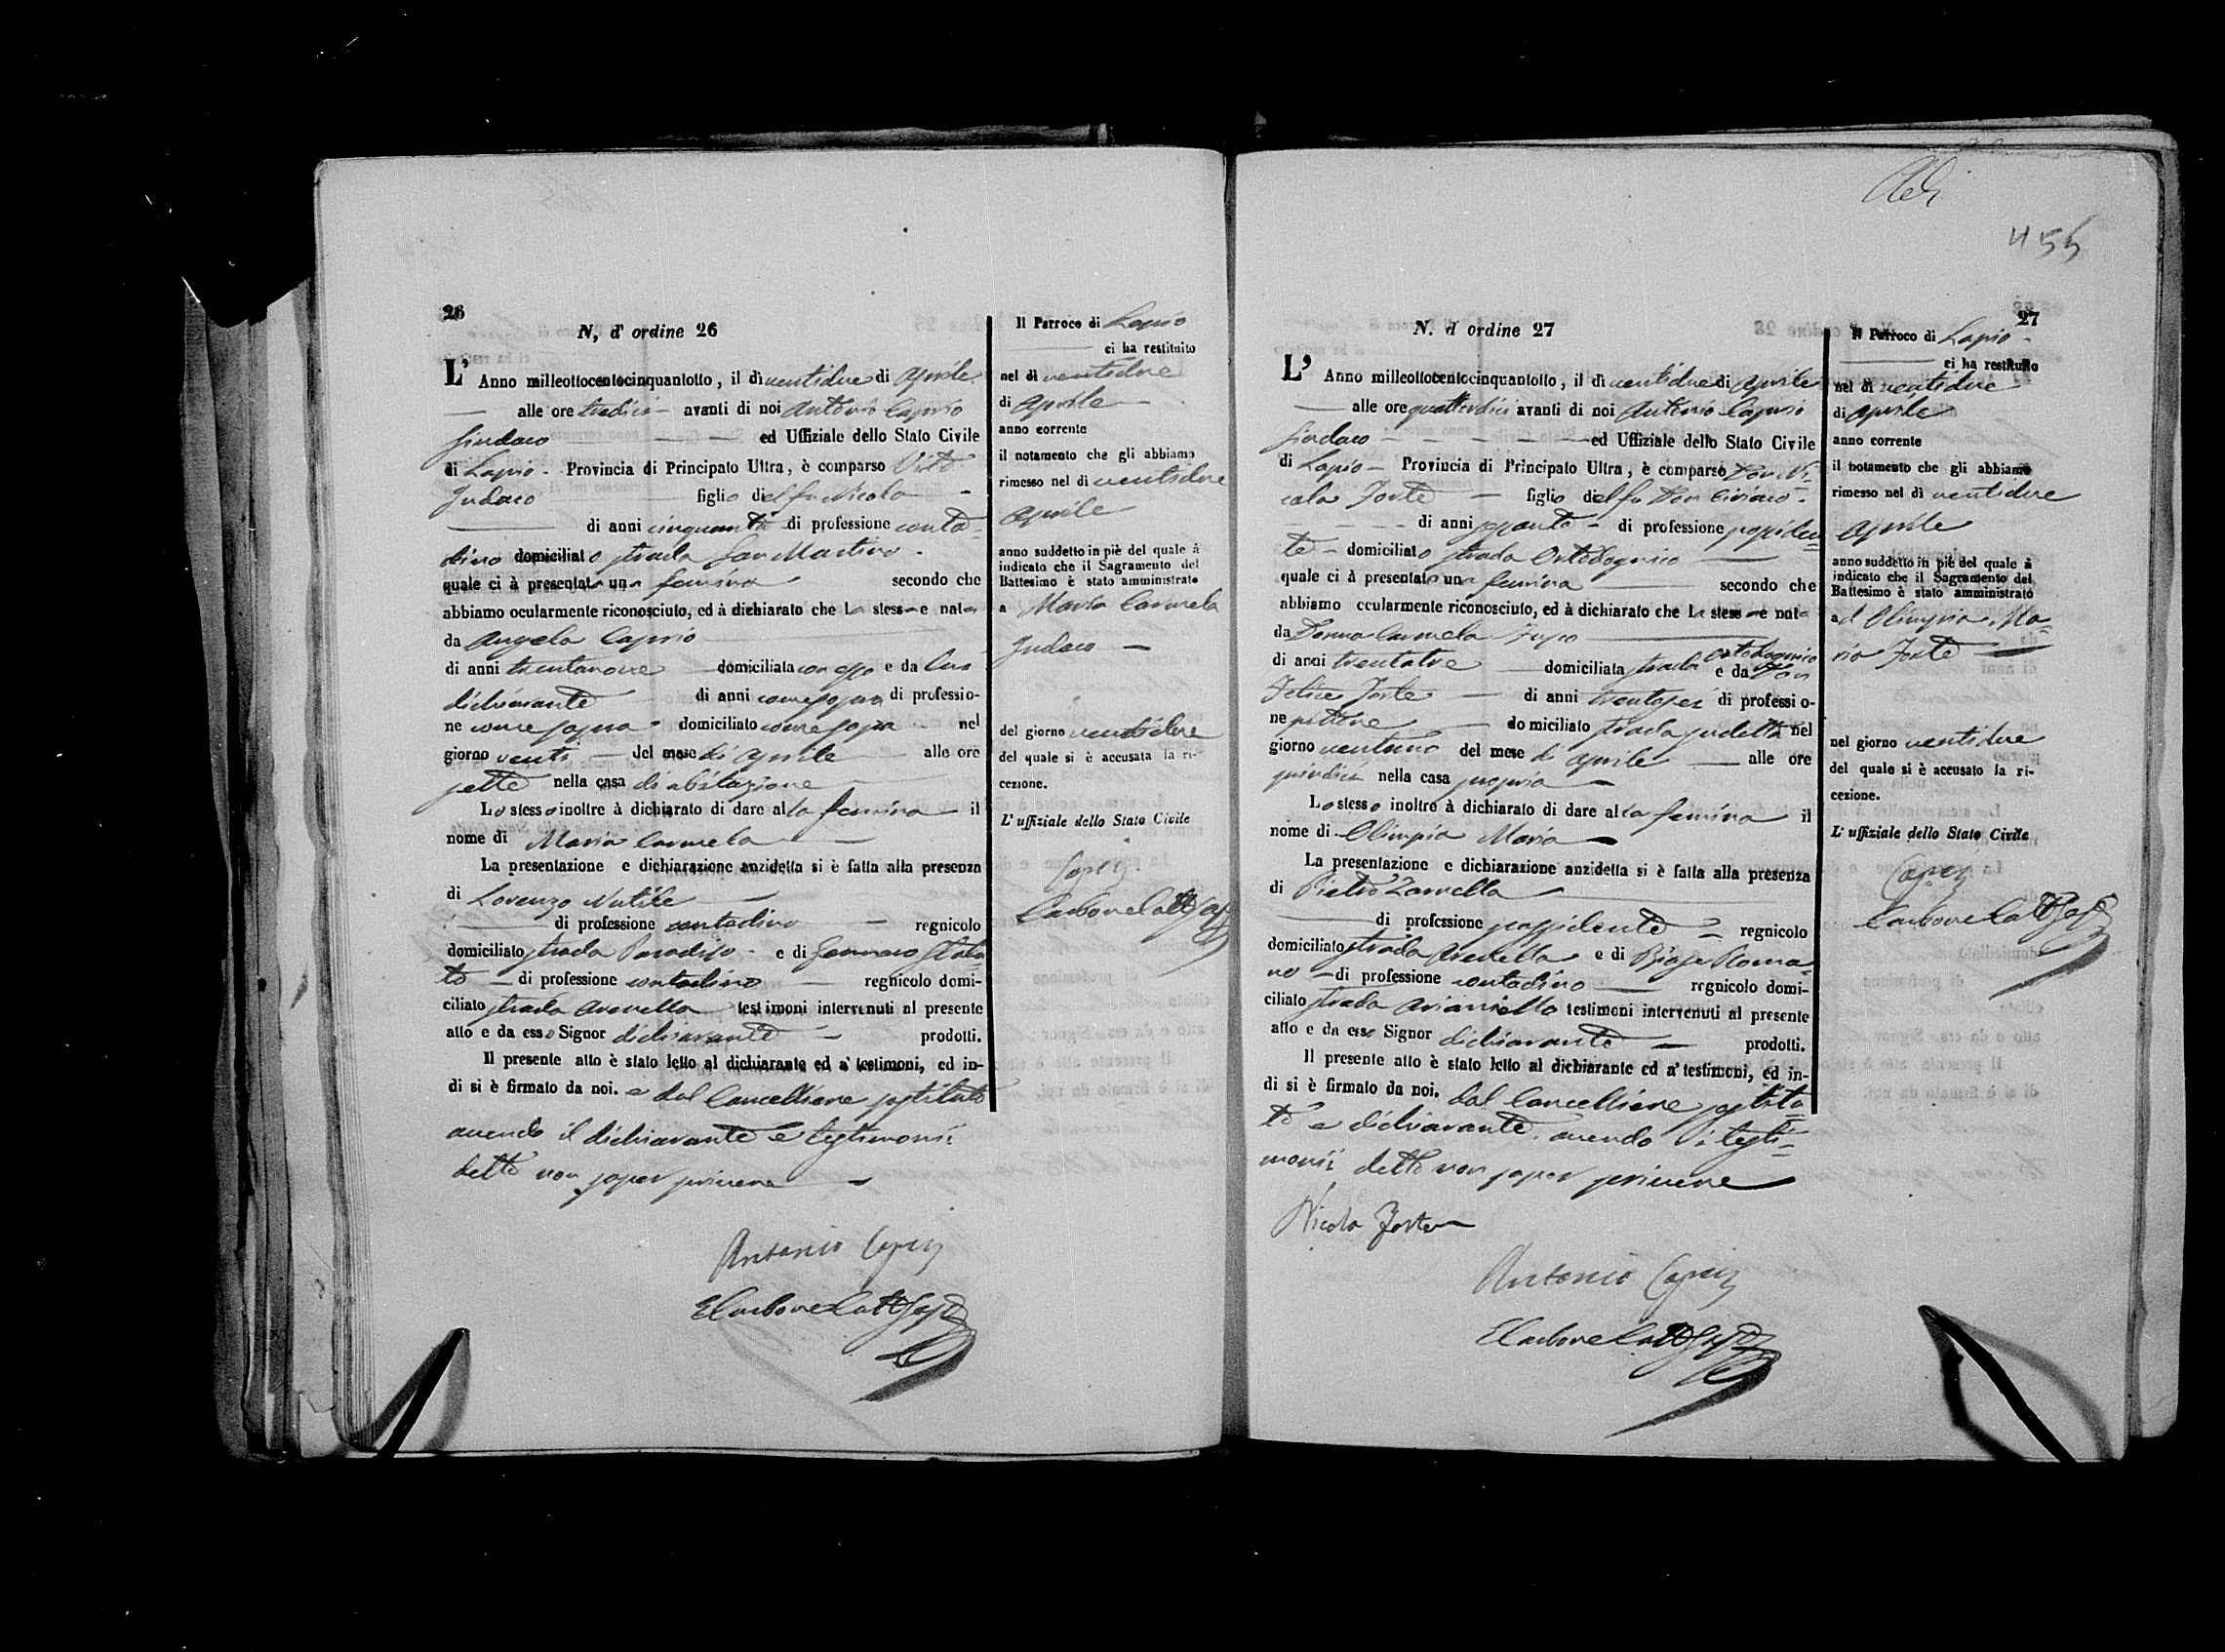 26
N, d' ordine 26
L' Anno milleottocentocinquantotto, il dì ventidue di aprile
alle ore tredici avanti di noi Antonio Caprio
Sindaco ed Uffiziale dello Stato Civile
di Lapio Provincia di Principato Ultra, è comparso Vito
Judaco figlio del fu Nicola
di anni cinquanta di professione conta=
dino domiciliato strada San Martino
quale ci à presentata una femina secondo che
abbiamo ocularmente riconosciuto, ed à dichiarato che la stessa e nata
da Angela Caprio
di anni trentanove domiciliata con esso e da lui
dichiarante di anni come sopra di professio-
ne come sopra domiciliato come sopra nel
giorno venti del mese di aprile alle ore
sette nella casa di abitazione
Lo stesso inoltre à dichiarato di dare alla femina il
nome di Maria Carmela
La presentazione e dichiarazione anzidetta si è fatta alla presenza
di Lorenzo Nutile
di professione contadino regnicolo
domiciliato strada Paradiso e di Gennaro
di professione contadino regnicolo domi-
ciliato strada Aravella testimoni intervenuti al presente
atto e da esso Signor dichiarante prodotti.
Il presente atto è stato letto al dichiarante ed a' testimoni, ed in-
di si è firmato da noi. e dal Cancelliere sostituto
avendo il dichiarante e testimonii
detto non saper scrivere
Antonio Caprio
Il Parroco di Lapio
ci ha restituito
nel dì ventidue
di aprile
anno corrente
il notamento che gli abbiamo
rimesso nel dì ventidue
aprile
anno suddetto in piè del quale à
indicato che il Sagramento del
Battesimo è stato amministrato
a Maria Carmela
Judaco
del giorno ventidue
del quale si è accusata la ri-
cezione.
L' uffiziale dello Stato Civile
Caprio
455
27
N. d ordine 27
L' Anno milleottocentocinquantotto, il dì ventidue di aprile
alle ore quattordici avanti di noi Antonio Caprio
Sindaco ed Uffiziale dello Stato Civile
di Lapio Provincia di Principato Ultra, è comparso Don Ni=
cola Forte figlio del fu Don Ciriaco
di anni sessanta di professione possiden=
te domiciliato strada Ortodognico
quale ci à presentato una femina secondo che
abbiamo ocularmente riconosciuto, ed à dichiarato che la stessa e nata
da Donna Carmela
di anni trentatre domiciliata strada Ortodognico e da Don
Felice Forte di anni trentasei di professio-
ne domiciliato strada sudetta nel
giorno ventuno del mese di aprile alle ore
quindici nella casa propria
Lo stesso inoltre à dichiarato di dare alla femina il
nome di Olimpia Maria
La presentazione e dichiarazione anzidetta si è fatta alla presenza
di Pietro Zarrella
di professione possidente regnicolo
domiciliato strada Aravella e di Biase Roma=
no di professione contadino regnicolo domi-
ciliato strada Arianiello testimoni intervenuti al presente
atto e da esso Signor dichiarante prodotti.
Il presente atto è stato letto al dichiarante ed a' testimoni, ed in-
di si è firmato da noi. dal Cancelliere sostitu=
to e dichiarante, avendo i testi=
monii detto non saper scrivere
Nicola Forte
Antonio Caprio
Il Parroco di Lapio
ci ha restituito
nel dì ventidue
di aprile
anno corrente
il notamento che gli abbiamo
rimesso nel dì ventidue
aprile
anno suddetto in piè del quale à
indicato che il Sagramento del
Battesimo è stato amministrato
ad Olimpia Ma=
ria Forte
nel giorno ventidue
del quale si è accusato la ri-
cezione.
L' uffiziale dello Stato Civile
Caprio